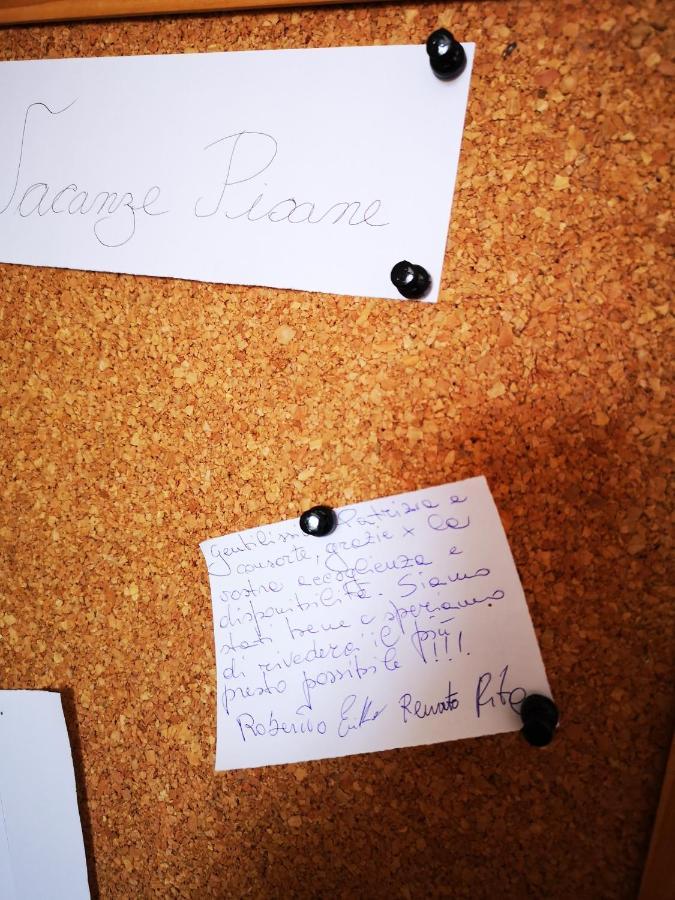 Vacanze Pisane
Gentilissi Patrizia e
consorte, grazie x la
vostra accoglienza e
disponibilità. Siamo
stati bene e speriamo
di rivederci il più
presto possibile !!!
Roberto Renato Rita